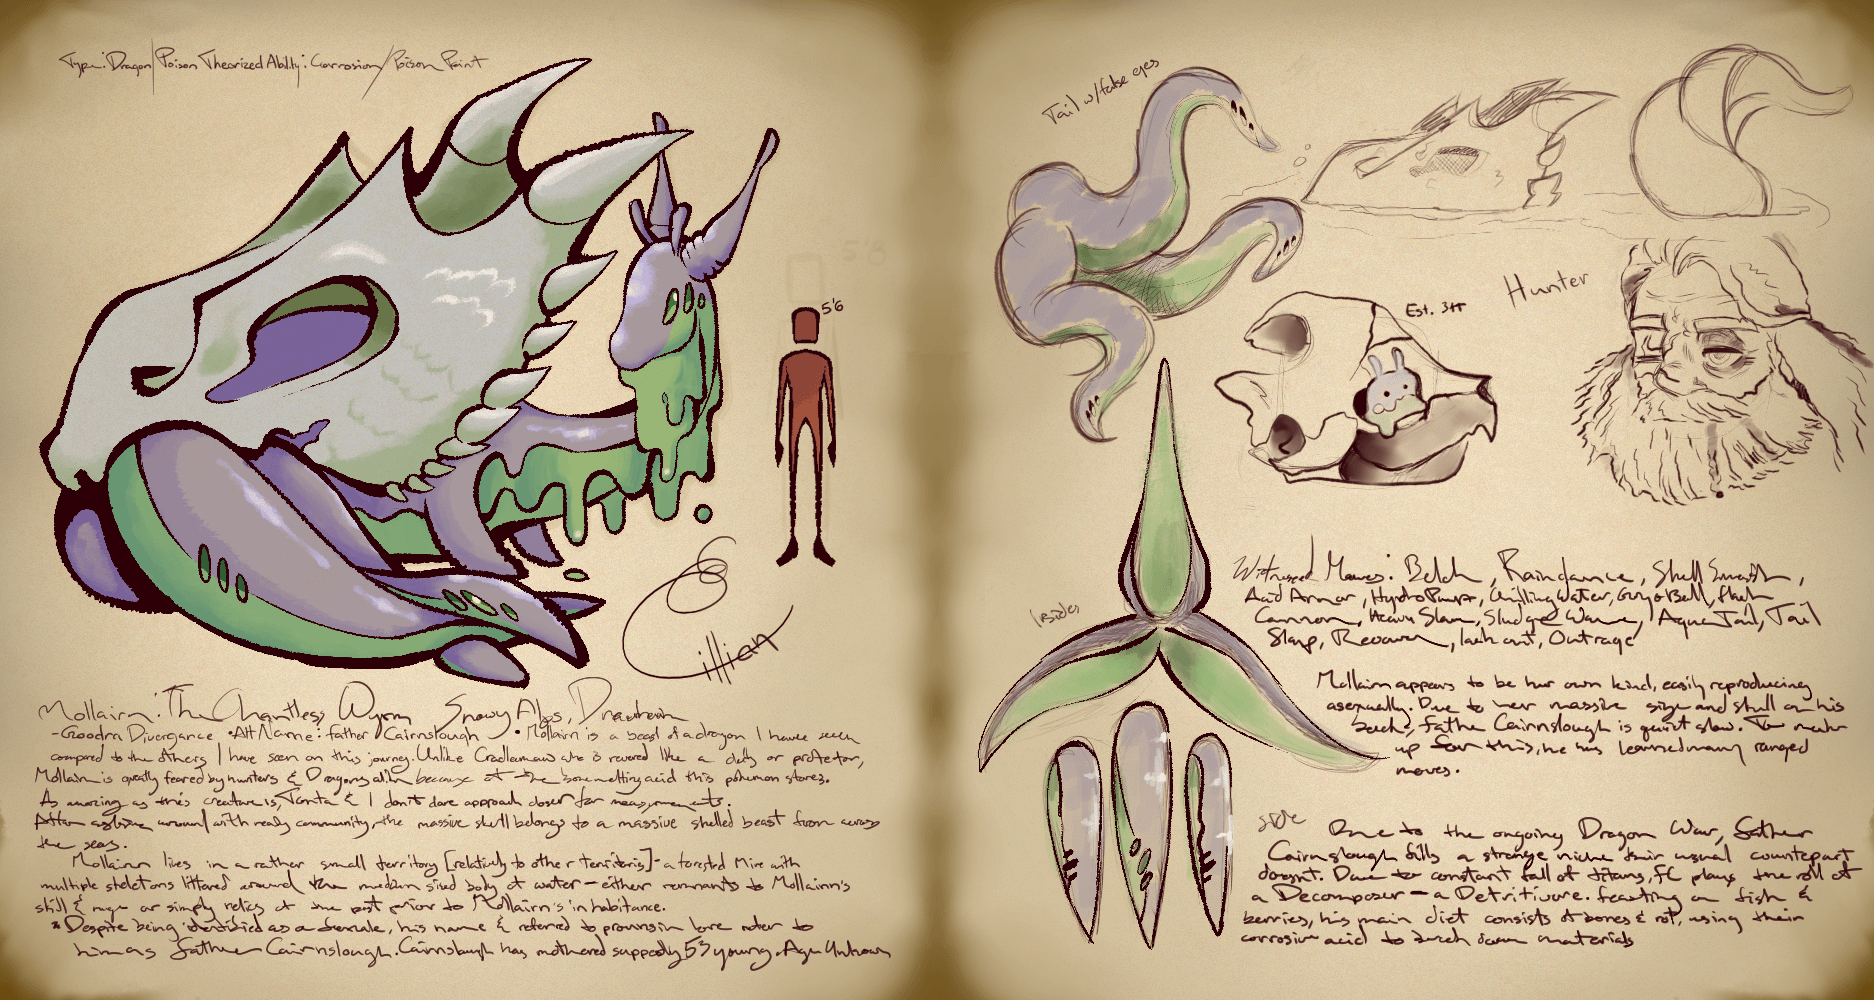 Type: Dragon/Poison Theorized Ability: Corrosion/Poison Point
5'8
5'6
Cillian
Mollairn: The Chantless Wyrm Snowy Alps,
-Goodra Divergance •Alt Name: father Cairnslough •Mollairn is a beast of a dragon I have seen
compared to the others I have seen on this journey. Unlike who is revered like a deity or protector,
Mollairn is greatly feared by hunters & Dragons alike because of the bone melting acid this pokemon stores.
As amazing as this creature is, & I don't dare approach closer for measurements.
After asking around with ready community, the massive skull belongs to a massive shelled beast from across
the seas.
Mollairn lives in a rather small territory [relatively to other territoris]-a forested Mire with
multiple skeletons littered around the medium sized body of water - either remnants to Mollairn's
skill & rage or simply relics of the past prior to Mollairn's inhabitance.
*Despite being identified as a female, his name & referred to pronouns in lore refer to
him as father Cairnslough. Cairnslough has mothered supposedly 53 young. Age Unknown
Tail w/false eyes
Est. 3ft
Hunter
Insides
Witnessed Moves: Belch, Raindance, Shell Smash,
Acid Armor, Hydro Pump, Chilling Water, Gyro Ball, Flash
Cannon, Heavy Slam, Sludge Wave, Aqua Tail, Tail
Slap, Recover, lash out, Outrage
Mollairn appears to be her own kind, easily reproducing
asexually. Due to her massive size and skull on his
back, father Cairnslough is quiet slow. To make
up for this, he has learned many ranged
moves.
side
Due to the ongoing Dragon War, father
Cairnslough fills a strange niche their usual counterpart
doesnt. Due to constant fall of titans, FC plays the roll of
a Decomposer - a Detritivore. feasting on fish &
berries, his main diet consists of bones & rot, using their
corrosive acid to break down materials